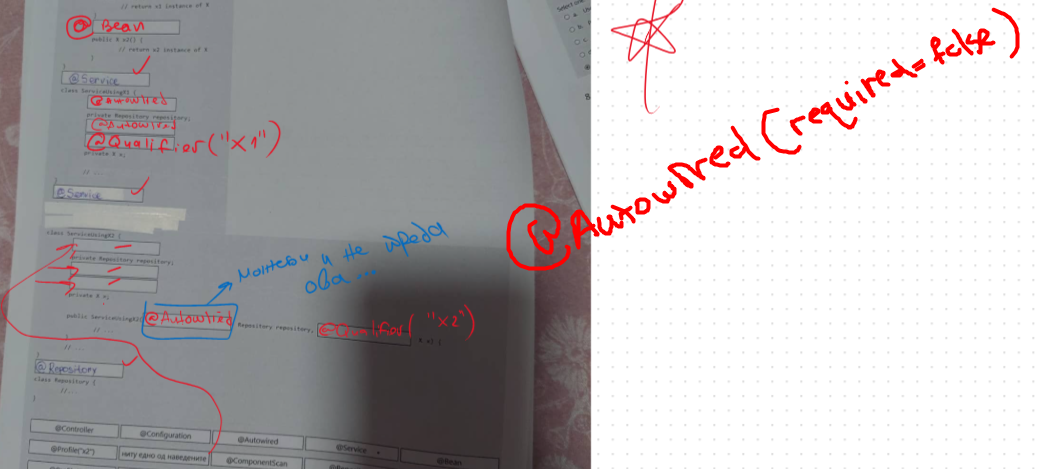 // return x1 instance of X
@ Bean
public X x2() {
// return x2 instance of X
}
}
@Service
class ServiceUsingX1 {
@Autowlied
private Repository repository;
@Autowired
@Qualifier("x1")
private X x;
// ...
}
@Service
class ServiceUsingX2 {
private Repository repository;
private X x;
public ServiceUsingX2( @Autowlied Repository repository, @Qualifier( "x2")
// ...
}
// ...
}
@Repository
class Repository {
//...
}
@Controller
@Configuration
@Autowired
@Service
@Bean
@Profile("x2")
ниту едно од наведените
@ComponentScan
и не треба
ова ...
@Autowired(required=false)